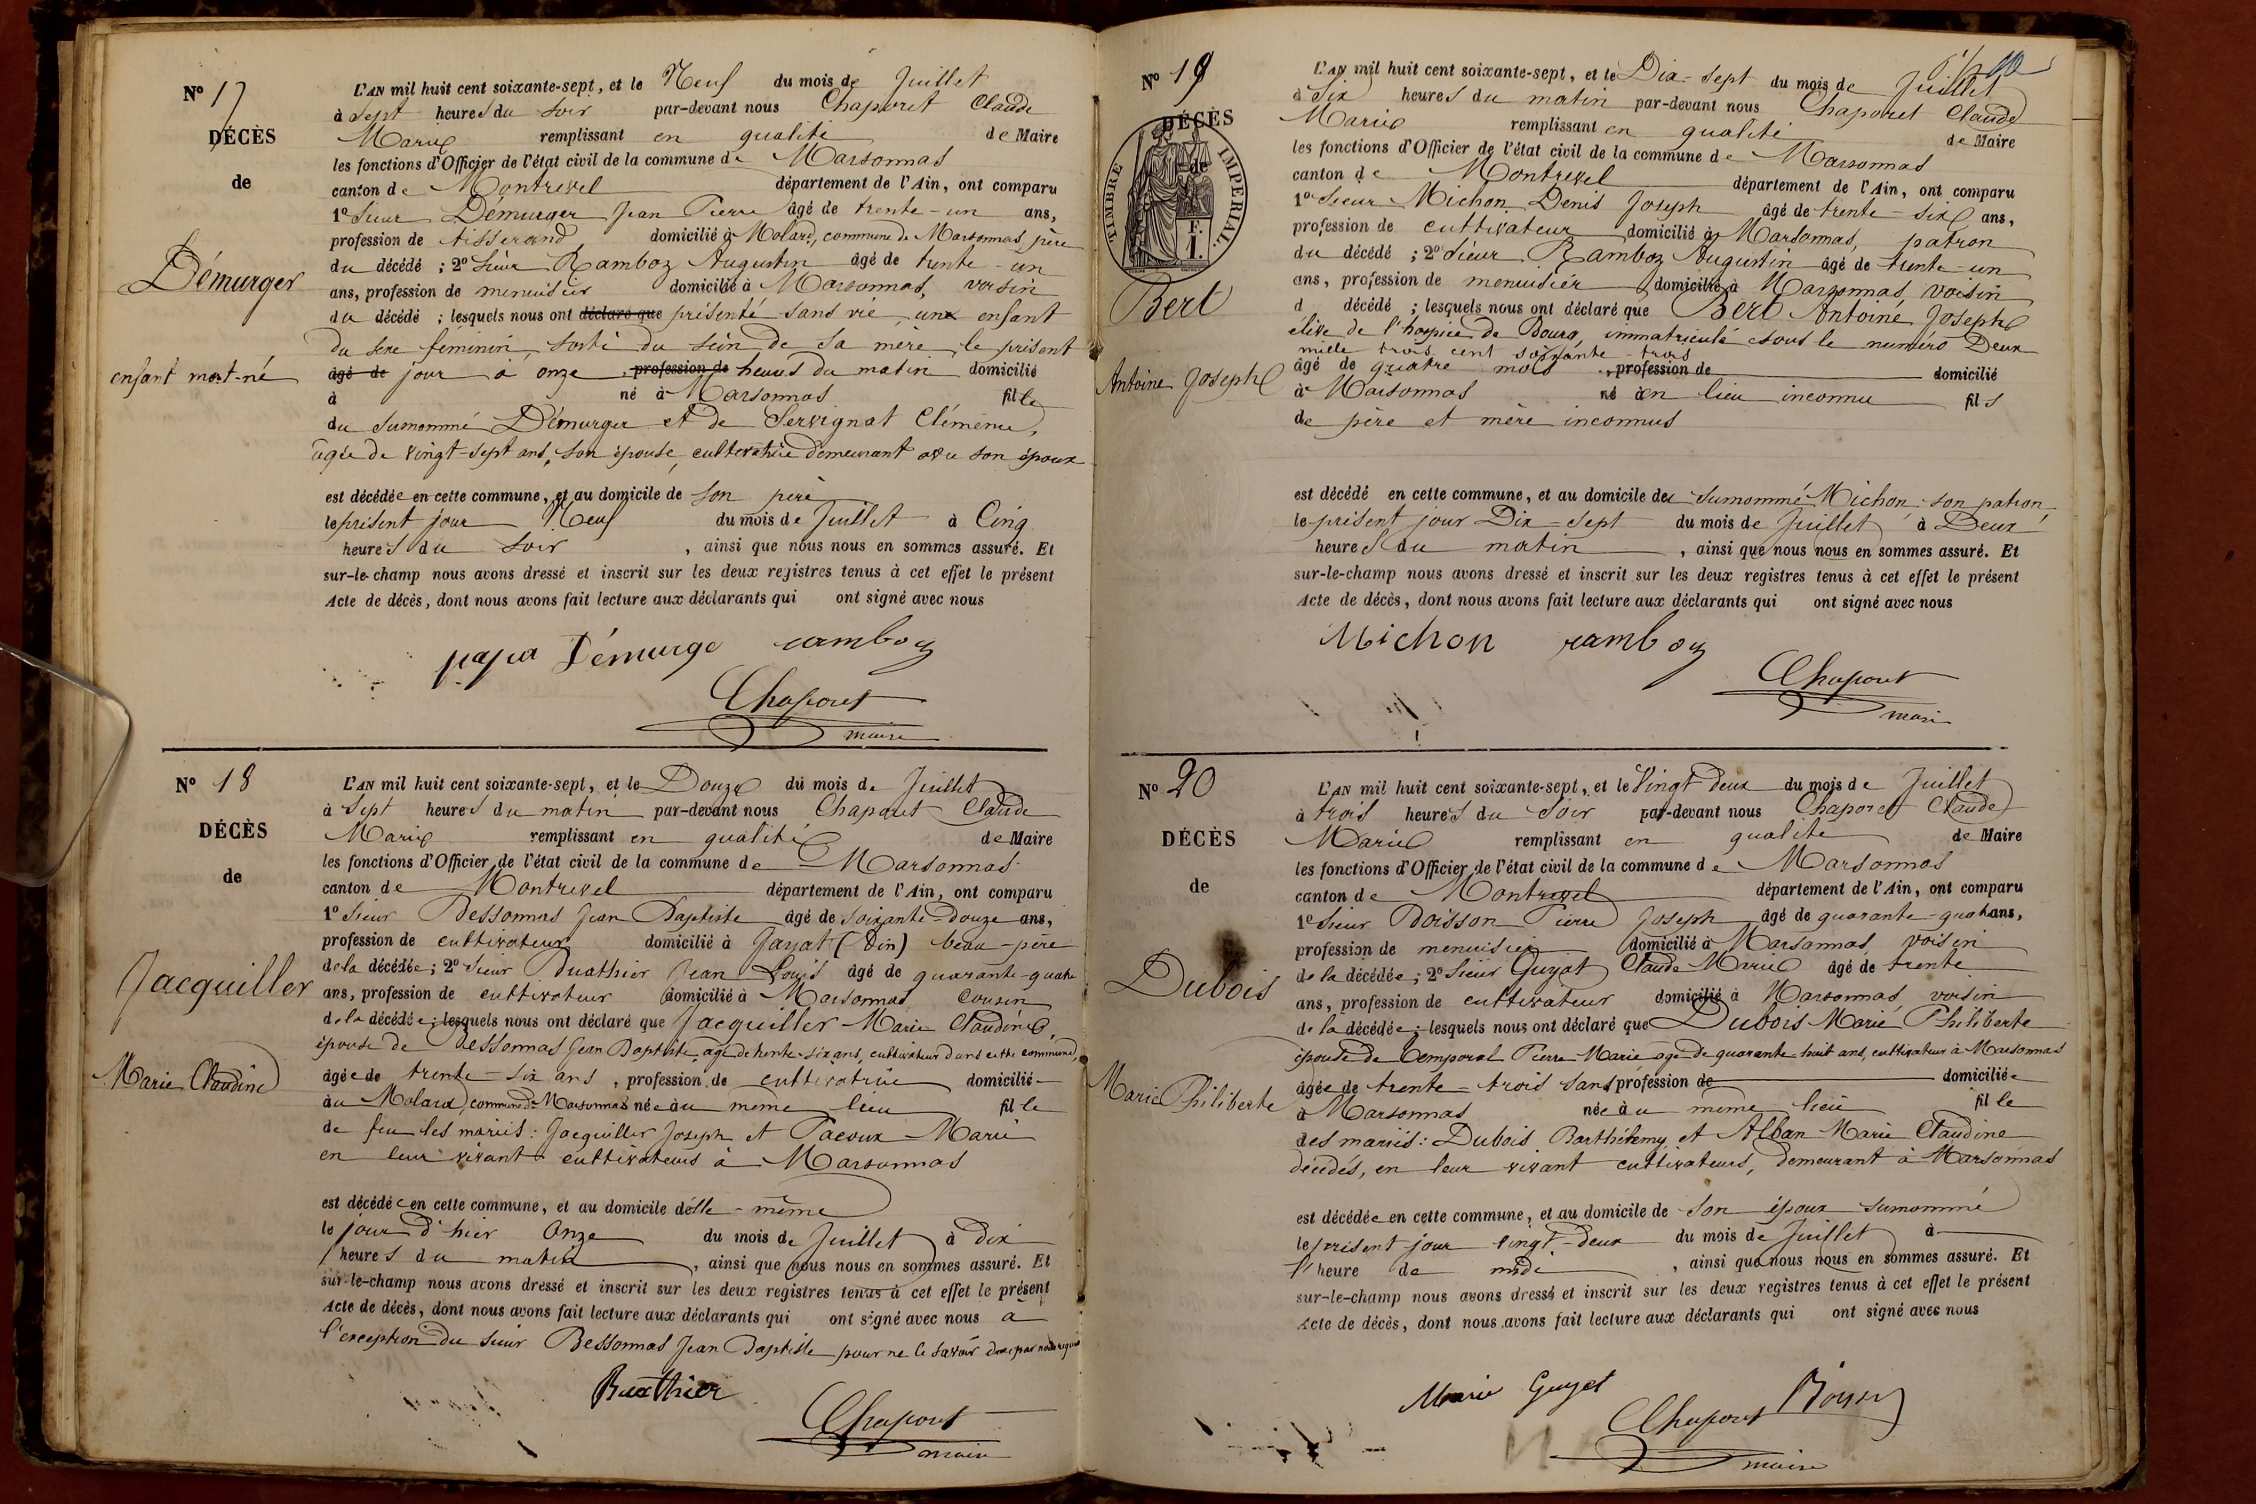 Nº 17
DÉCÈS
de
Démurger
enfant mort-né
L'AN mil huit cent soixante-sept, et le Neuf du mois de Juillet
à sept heures du soir par-devant nous Chaporet Claude
Marie remplissant en qualité de Maire
les fonctions d'Officier de l'état civil de la commune de Marsonnas
canton de Montrevel département de l'Ain, ont comparu
1º Sieur Démurger Jean Pierre âgé de trente-un ans,
profession de tisserand domicilié à Molard, commune de Marsonnas, père
du décédé ; 2º Sieur Ramboz Augustin âgé de trente-un
ans, profession de menuisier domicilié à Marsonnas, voisin
du décédé ; lesquels nous ont déclaré que présenté sans vie, une enfant
du sexe féminin, sorti du sein de sa mère, le présent
âgé de jour à onze profession de heures du matin domicilié
à né à Marsonnas fille
du surnommé Démurger et de Servignat Clémence,
âgée de vingt-sept ans, son épouse, cultivatrice demeurant avec son époux
est décédée en cette commune, et au domicile de son père
le présent jour Neuf du mois de Juillet à Cinq
heures du soir, ainsi que nous nous en sommes assuré. Et
sur-le-champ nous avons dressé et inscrit sur les deux registres tenus à cet effet le présent
Acte de décès, dont nous avons fait lecture aux déclarants qui ont signé avec nous
Démurge ramboz
Chaporet
maire
Nº 18
DÉCÈS
de
Jacquiller
Marie Claudine
L'AN mil huit cent soixante-sept, et le Douze du mois de Juillet
à sept heures du matin par-devant nous Chaporet Claude
Marie remplissant en qualité de Maire
les fonctions d'Officier de l'état civil de la commune de Marsonnas
canton de Montrevel département de l'Ain, ont comparu
1º Sieur Bessonnas Jean Baptiste âgé de soixante-douze ans,
profession de cultivateur domicilié à Jayat (Ain) beau-père
de la décédée; 2º Sieur Buathier Jean Louis âgé de quarante-quatre
ans, profession de cultivateur domicilié à Marsonnas Cousin
de la décédée; lesquels nous ont déclaré que Jacquiller Marie Claudine,
épouse de Bessonnas Jean Baptiste, âgé de trente-six ans, cultivateur dans cette commune,
âgée de trente-six ans, profession de cultivatrice domicilié
au Molard, commune de Marsonnas née au même lieu fille
de feu les mariés: Jacquiller Joseph et Pacoux Marie
en leur vivant cultivateurs à Marsonnas
est décédée en cette commune, et au domicile d'elle-même
le jour d'hier Onze du mois de Juillet à dix
heures du matin, ainsi que nous nous en sommes assuré. Et
sur-le-champ nous avons dressé et inscrit sur les deux registres tenus à cet effet le présent
Acte de décès, dont nous avons fait lecture aux déclarants qui ont signé avec nous à
l'exception du sieur Bessonnas Jean Baptiste pour ne le savoir de ce par nous requis
Buathier
Chaporet
maire
Nº 19
DÉCÈS
de
TIMBRE IMPERIAL.
F.
1.
Bert
Antoine Joseph
L'AN mil huit cent soixante-sept, et le Dix-sept du mois de Juillet
à Six heures du matin par-devant nous Chaporet Claude
Marie remplissant en qualité de Maire
les fonctions d'Officier de l'état civil de la commune de Marsonnas
canton de Montrevel département de l'Ain, ont comparu
1º Sieur Michon Denis Joseph âgé de trente-six ans,
profession de cultivateur domicilié à Marsonnas, patron
du décédé ; 2º Sieur Ramboz Augustin âgé de trente-un
ans, profession de menuisier domicilié à Marsonnas, voisin
d décédé ; lesquels nous ont déclaré que Bert Antoine Joseph
élève de l'hospice de Bourg, immatriculé sous le numéro Deux
mille trois cent soixante-trois
âgé de quatre mois, profession de domicilié
à Marsonnas né en lieu inconnu fils
de père et mère inconnus
est décédé en cette commune, et au domicile du surnommé Michon, son patron
le présent jour Dix-sept du mois de Juillet à Deux
heures du matin, ainsi que nous nous en sommes assuré. Et
sur-le-champ nous avons dressé et inscrit sur les deux registres tenus à cet effet le présent
Acte de décès, dont nous avons fait lecture aux déclarants qui ont signé avec nous
Michon ramboz
Chaporet
maire
Nº 20
DÉCÈS
de
Dubois
Marie Philiberte
L'AN mil huit cent soixante-sept, et le Vingt deux du mois de Juillet
à trois heures du soir par-devant nous Chaporet Claude
Marie remplissant en qualité de Maire
les fonctions d'Officier de l'état civil de la commune de Marsonnas
canton de Montrevel département de l'Ain, ont comparu
1º Sieur Boisson Pierre Joseph âgé de quarante-quatre ans,
profession de menuisier domicilié à Marsonnas voisin
de la décédée; 2º Sieur Guyat Claude Marie âgé de trente
ans, profession de cultivateur domicilié à Marsonnas voisin
de la décédée; lesquels nous ont déclaré que Dubois Marie Philiberte
épouse de Temporal Pierre Marie âgé de quarante huit ans, cultivateur à Marsonnas
âgée de trente-trois sans profession de domiciliée
à Marsonnas née au même lieu fille
des mariés: Dubois Barthélemy et Alban Marie Claudine
décédés, en leur vivant cultivateurs, demeurant à Marsonnas
est décédée en cette commune, et au domicile de son époux surnommé
le présent jour vingt-deux du mois de Juillet à
l'heure de midi, ainsi que nous nous en sommes assuré. Et
sur-le-champ nous avons dressé et inscrit sur les deux registres tenus à cet effet le présent
Acte de décès, dont nous avons fait lecture aux déclarants qui ont signé avec nous
Marie Guyat Boisson
Chaporet
maire